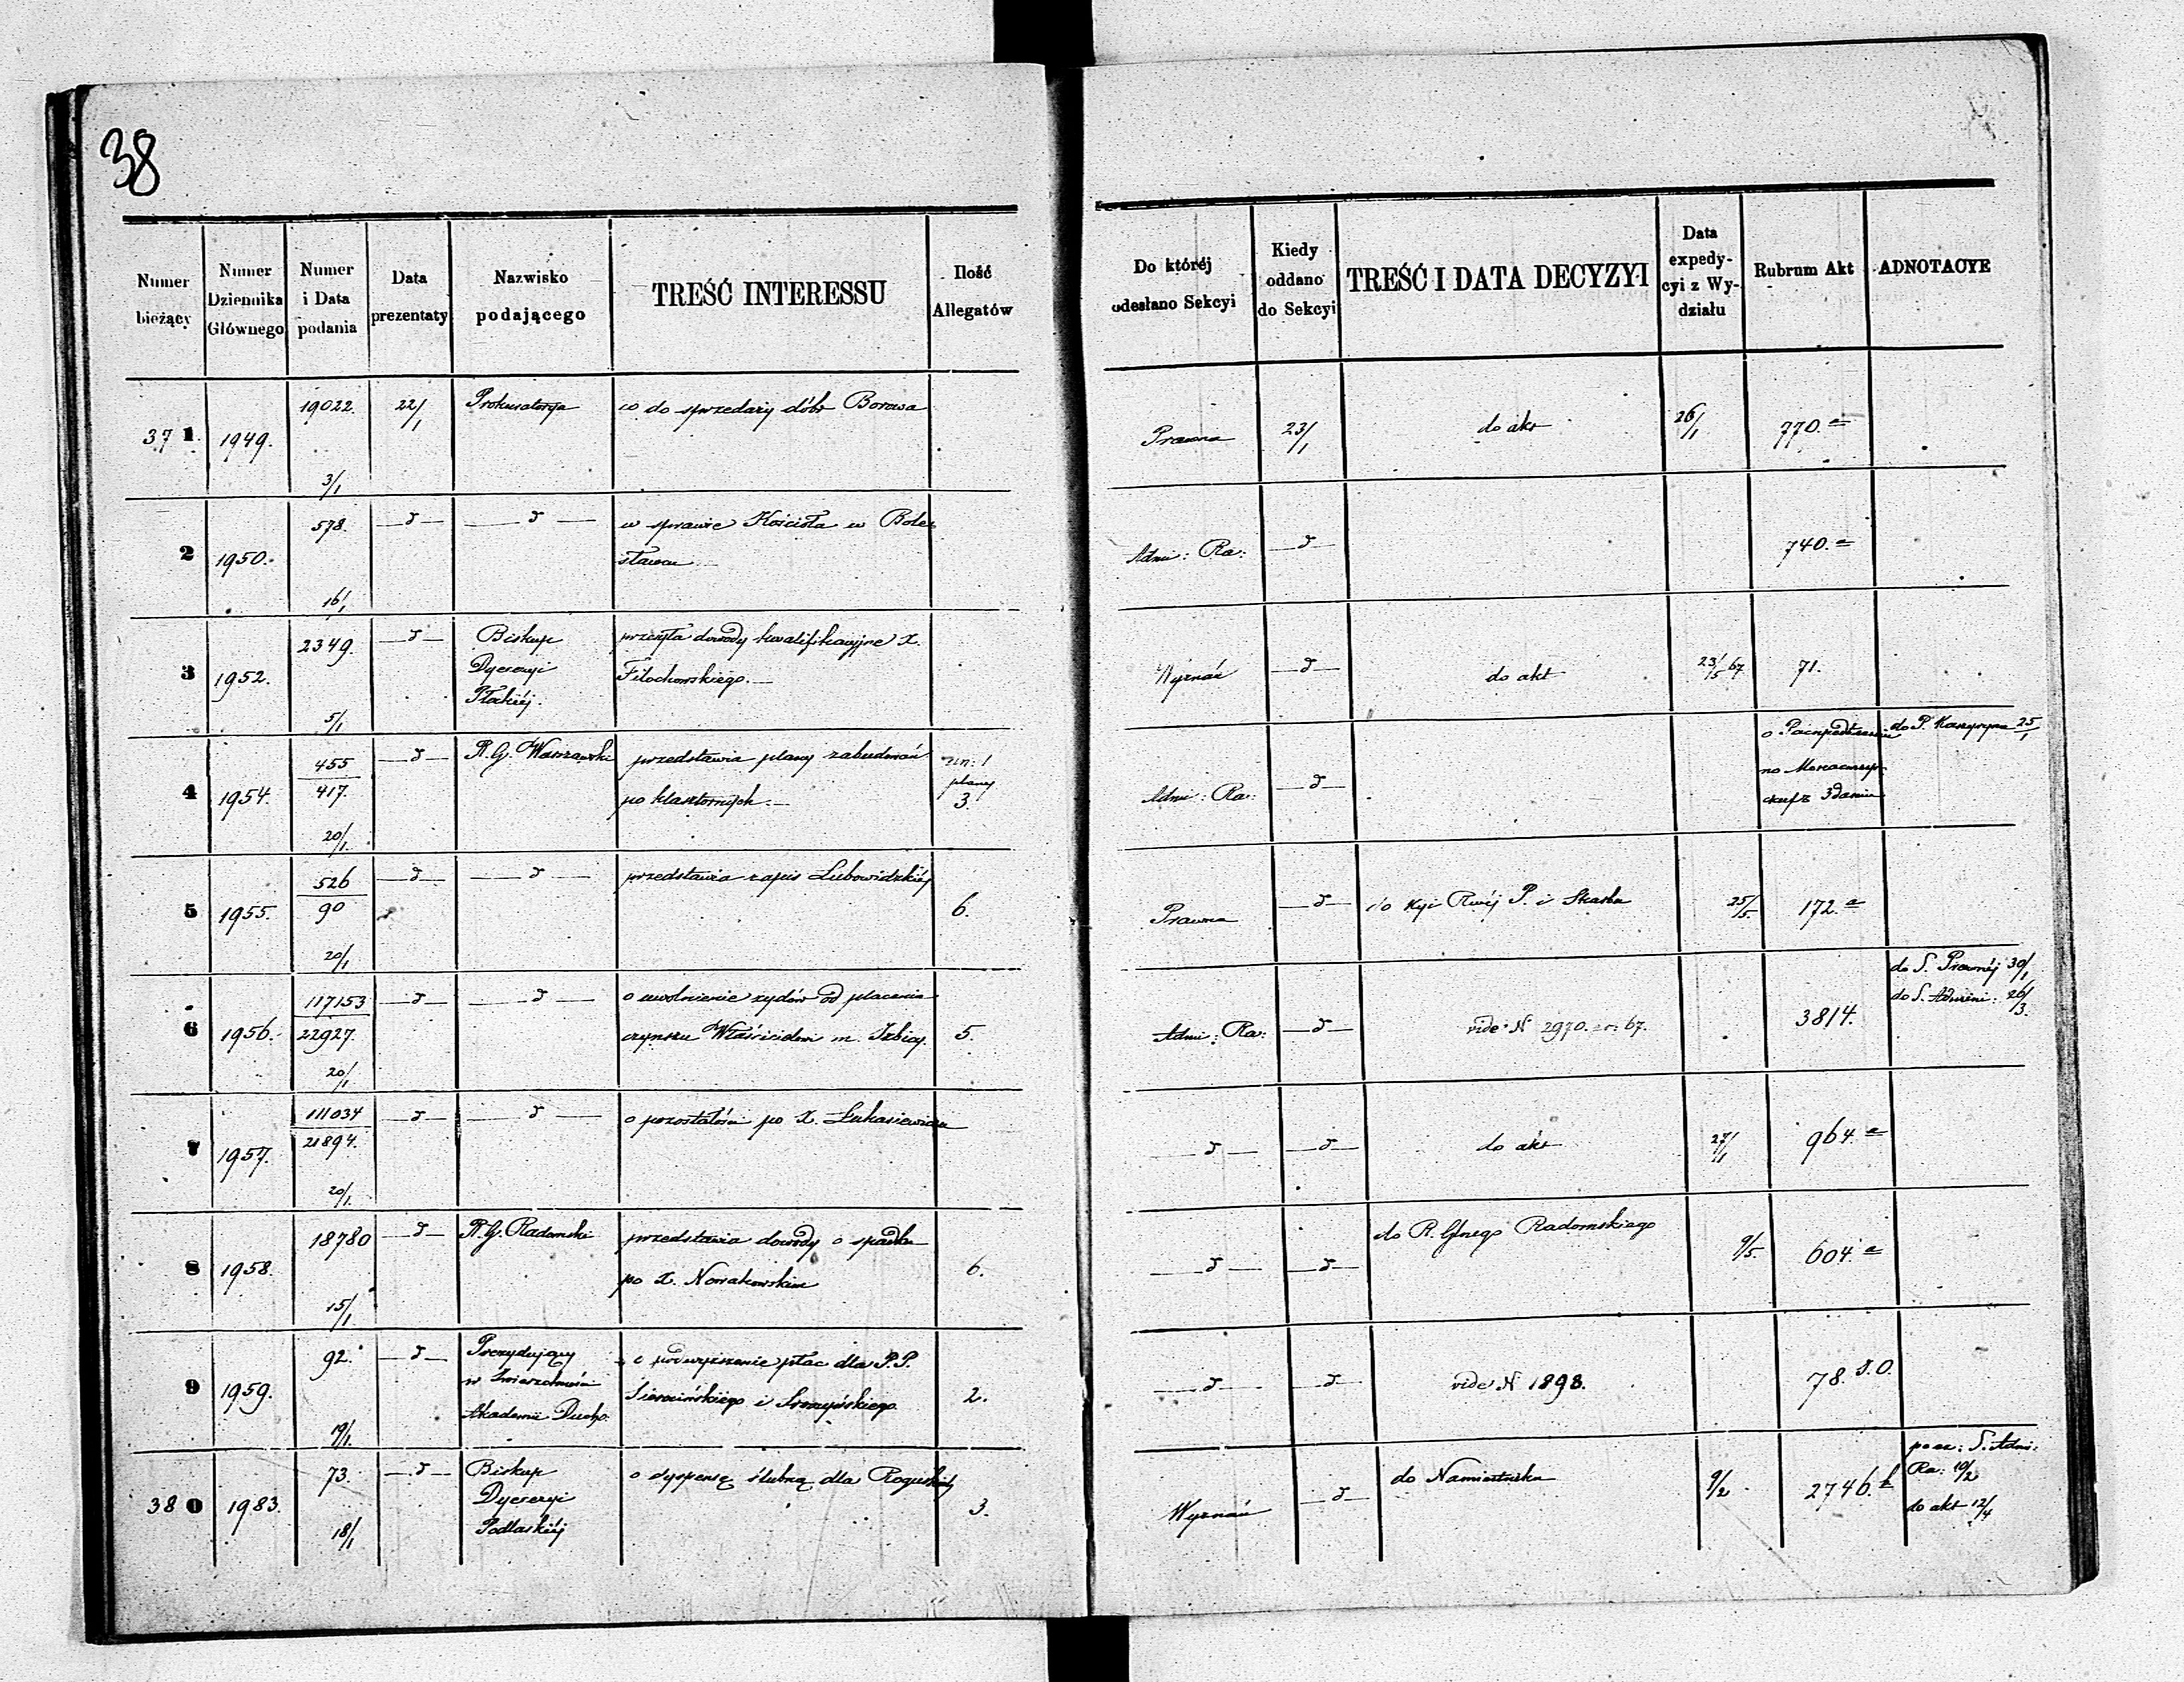 38
Numer bieżący
Numer Dziennika Głównego
Numer i Data podania
Data prezentaty
Nazwisko podającego
TREŚĆ INTERESSU
Ilość Allegatów
Do której odesłano Sekcyi
Kiedy oddano do Sekcyi
TREŚĆ I DATA DECYZYI
Data expedycyi z Wydziału
Rubrum Akt
ADNOTACYE
37 1 1949. 19022. 3/1 22/1 Prokuratorya co do sprzedaży dóbr Borowa Prawna 23/1 do akt 26/1 770.a
2 1950. 578. 16/1 —d— —d— w sprawie Kościoła w Bole-
sławcu Admi: Ra: —d— 740.a
3 1952. 2349. 5/1 —d— Biskup
Dyecezyi
Płockiéj. przesyła dowody kwalifikacyjne X.
Filochowskiego.— Wyznań —d— do akt 23/5 67 71.
4 1954. 455
417. 20/1 —d— R. G. Warszawski przedstawia plany zabudowań
po klasztornych.— plany
3 Admi: Ra: —d— do P. 25/1
5 1955. 526
90 20/1 —d— —d— przedstawia zapis Lubowidzkiéj 6. Prawna —d— do Kyi Rwéj P. i Skarbu 25/5 172.a
6 1956. 117153
22927. 20/1 —d— —d— o uwolnienie żydów od płacenia
czynszu Właścicielowi m. Izbicy. 5. Admi: Ra: —d— vide N 2970. r: 67. 3814. do S. Prawnéj 30/1
do S. Admini: 26/3
7 1957. 111034
21894. 20/1 —d— —d— o pozostałości po X. Łukasiewiczu —d— —d— do akt 27/11 964.a
8 1958. 18780 15/1 —d— R. G. Radomski przedstawia dowody o spadku
po X. Nowakowskim 6. —d— —d— do R. Gnego Radomskiego 9/5 604.a
9 1959. 92. 19/1 —d— Prezydujący
w Zwierzchności
Akademii Ducho: o podwyższenie płac dla P.P.
i 2. —d— —d— vide N 1893. 78. S.O.
38 0 1983. 73. 18/1 —d— Biskup
Dyecezyi
Podlaskiéj o dyspensę ślubną dla Roguskiéj 3. Wyznań —d— do Namiestnika 9/2 2746. S. Admi:
Ra: 10/2
do akt 12/4